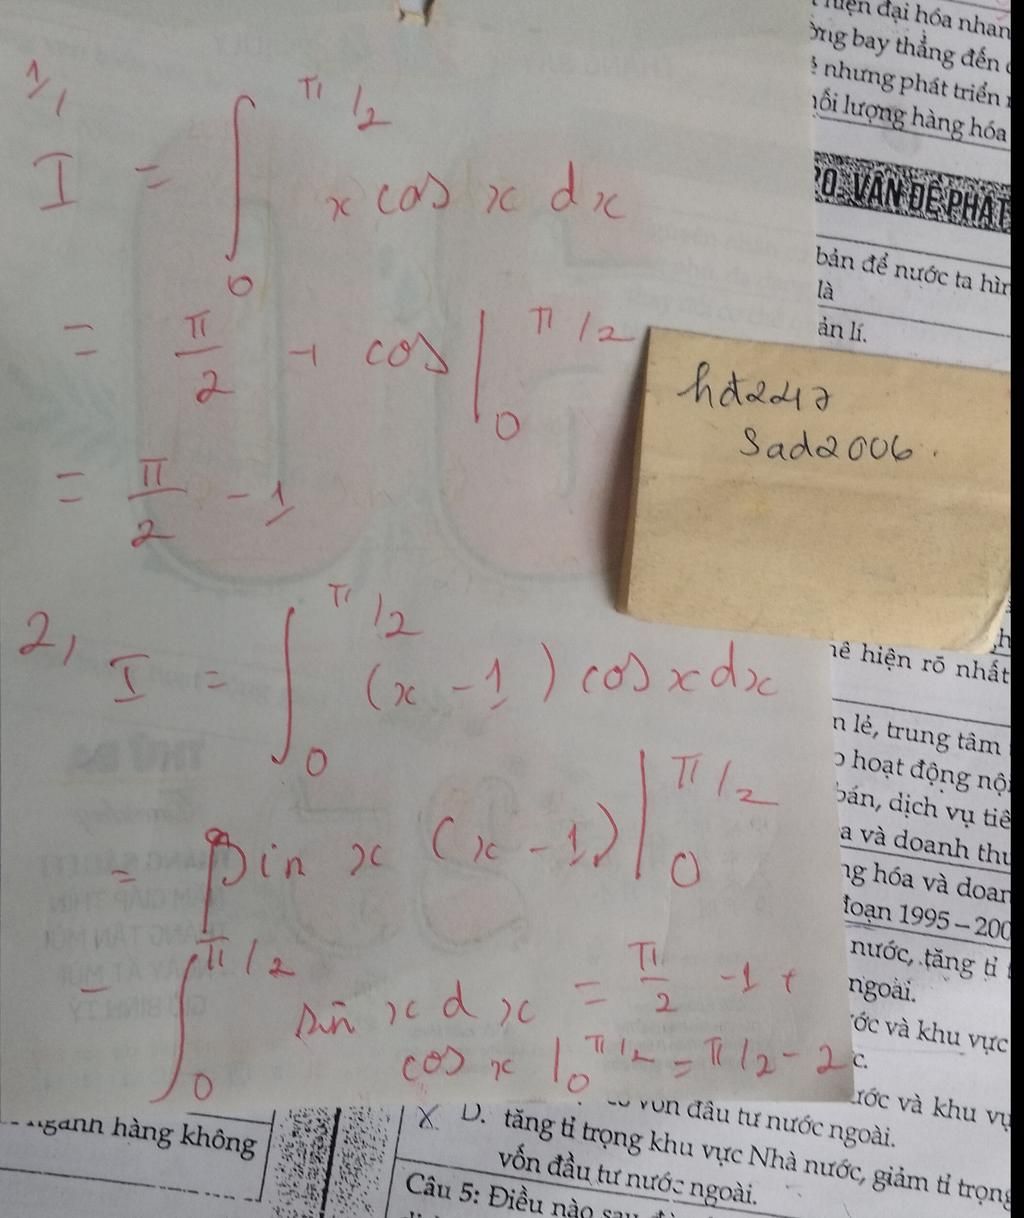 1/,
I = ∫₀^{π/2} x cos x dx
= π/2 + cos |₀^{π/2}
= π/2 - 1
hđ2417
Sad2006.
2, I = ∫₀^{π/2} (x - 1) cos x dx
= sin x (x - 1) |₀^{π/2}
- ∫₀^{π/2} sin x d x = π/2 - 1 +
cos x |₀^{π/2} = π/2 - 2
hiện đại hóa nhan
ờng bay thẳng đến
nhưng phát triển
ối lượng hàng hóa
20. VẤN ĐỀ PHÁT
bản để nước ta hìn
là
ản lí.
hể hiện rõ nhất
n lẻ, trung tâm
hoạt động nội
bán, dịch vụ tiê
a và doanh thu
ng hóa và doan
đoạn 1995 – 200
nước, tăng tỉ t
ngoài.
ước và khu vực
c.
ước và khu vự
vốn đầu tư nước ngoài.
X D. tăng tỉ trọng khu vực Nhà nước, giảm tỉ trọng
vốn đầu tư nước ngoài.
Câu 5: Điều nào sau
ngành hàng không
THỨ BA